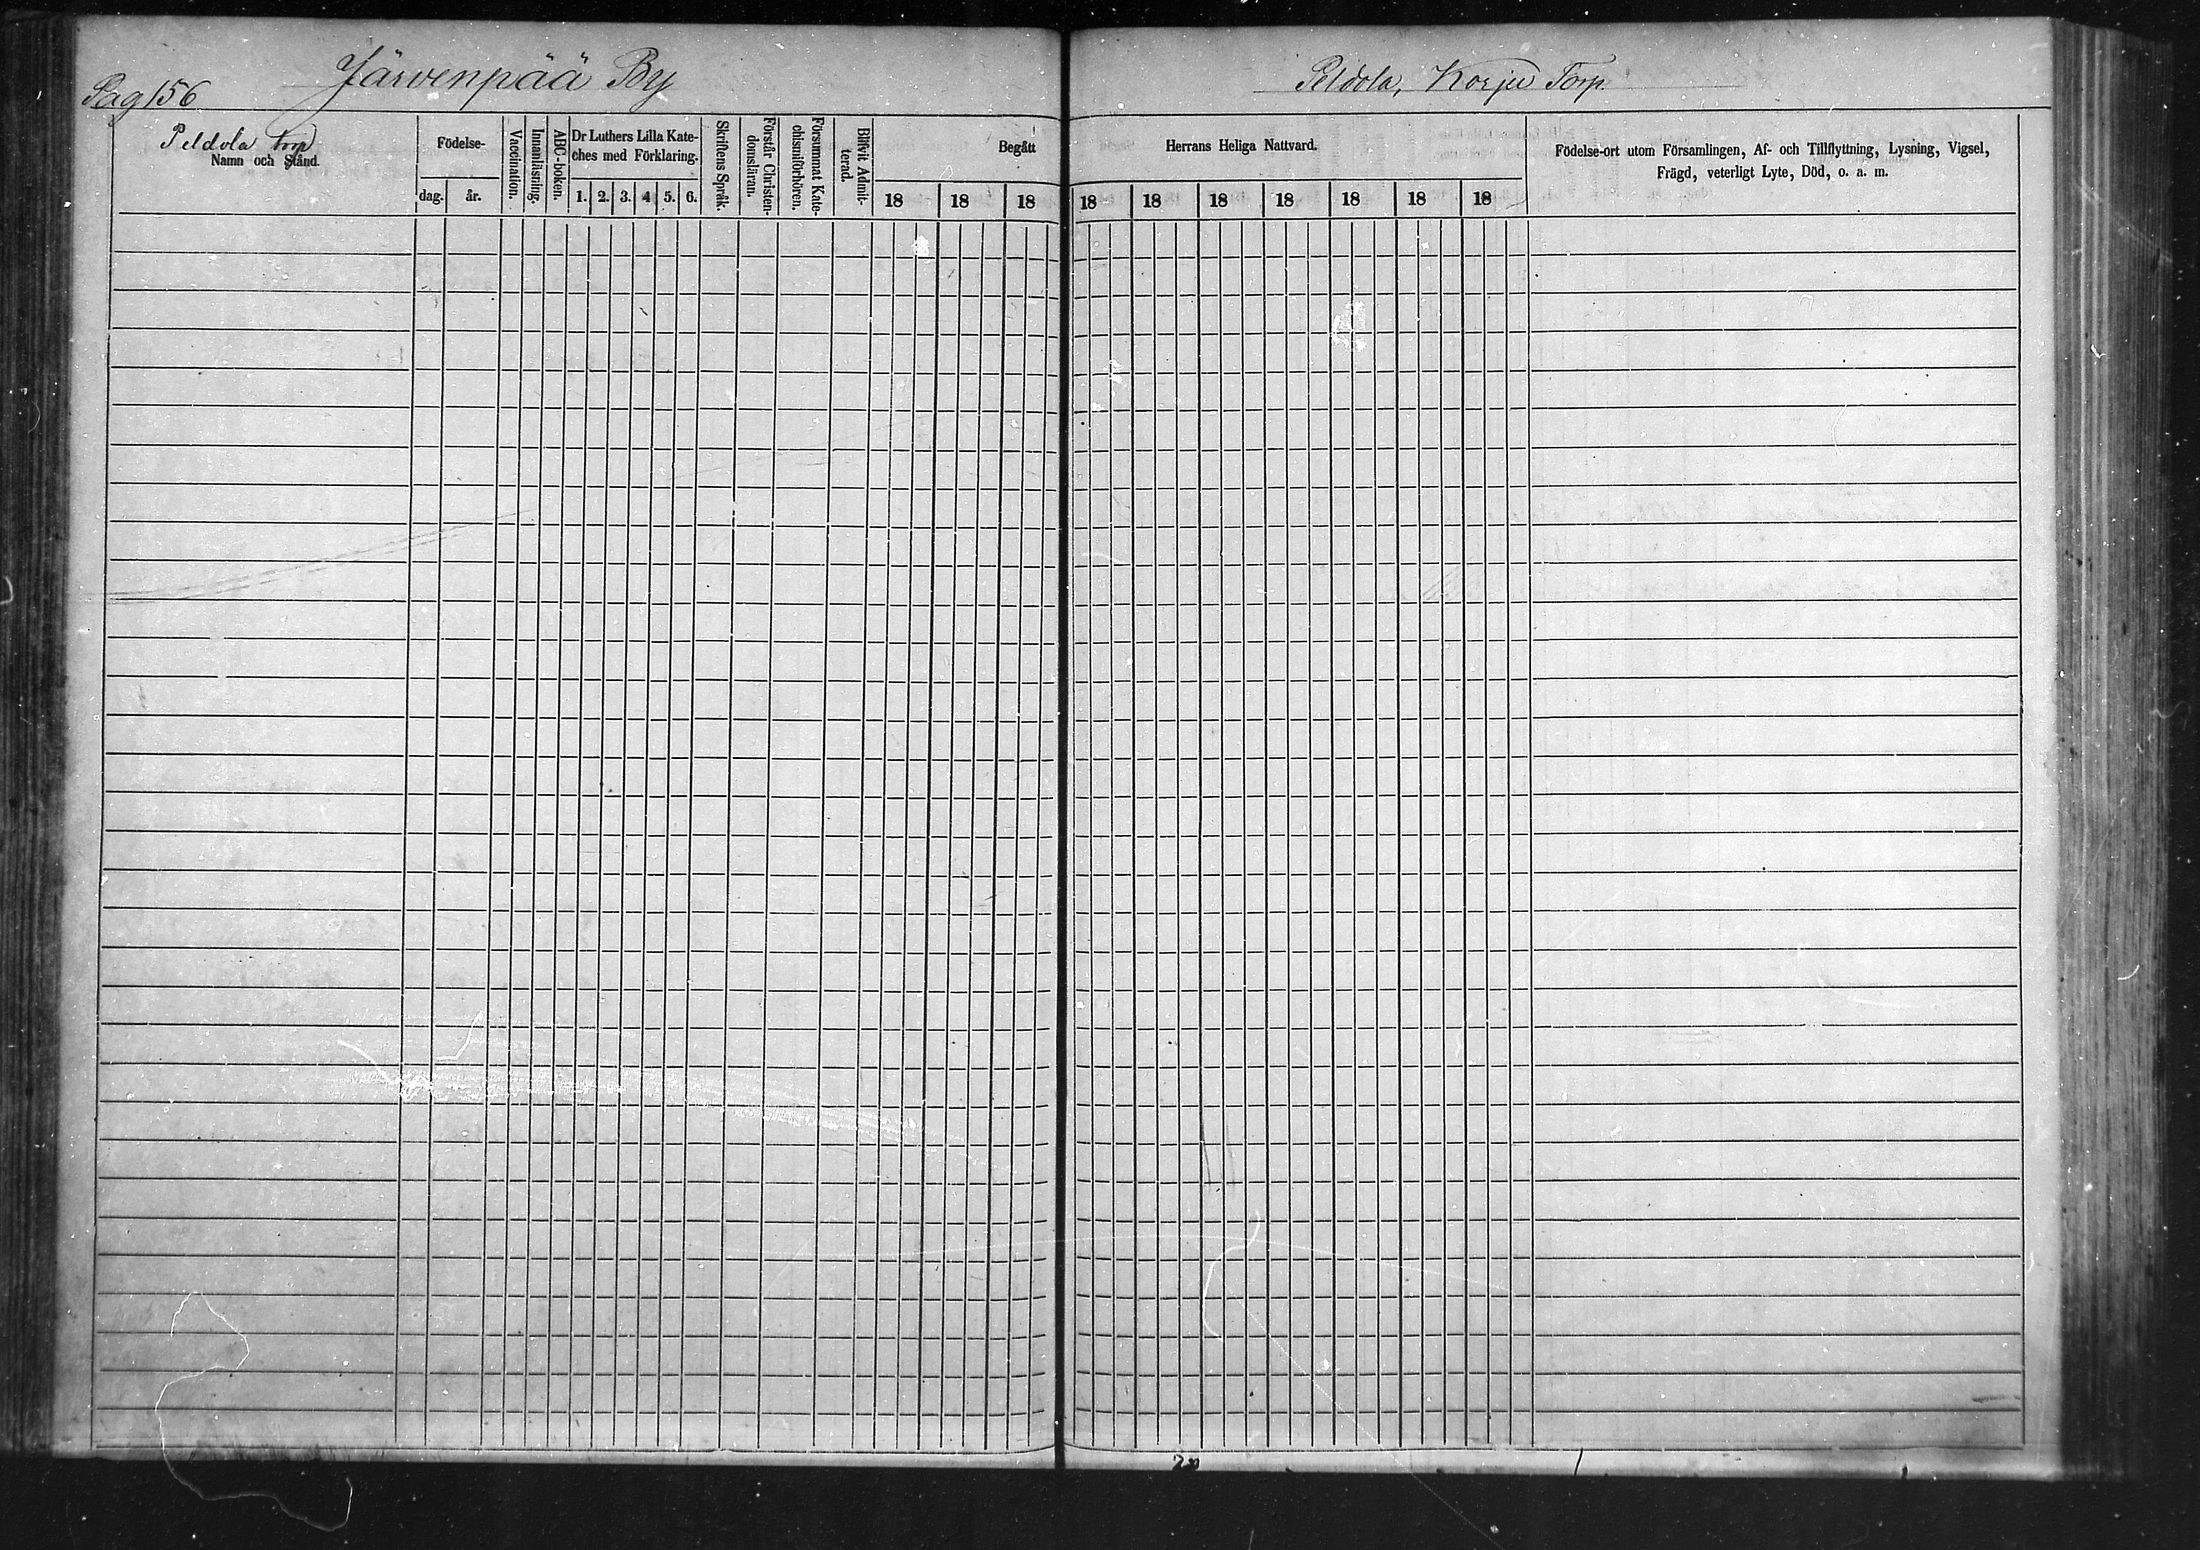 Pag 156
Järvenpää By
Peldola, Korju Torp.
Peldola torp
Namn och Stånd.
Födelse-
dag. år.
Vaccination.
Innanläsning.
ABC-boken.
Dr Luthers Lilla Kate-
ches med Förklaring.
1. 2. 3. 4 5. 6.
Skriftens Språk.
Förstår Christen-
domsläran.
Försummat Kate-
chismiförhören.
Blifvit Admit-
terad.
Begått
18 18 18
Herrans Heliga Nattvard.
18 18 18 18 18 18 18
Födelse-ort utom Församlingen, Af- och Tillflyttning, Lysning, Vigsel,
Frägd, veterligt Lyte, Död, o. a. m.